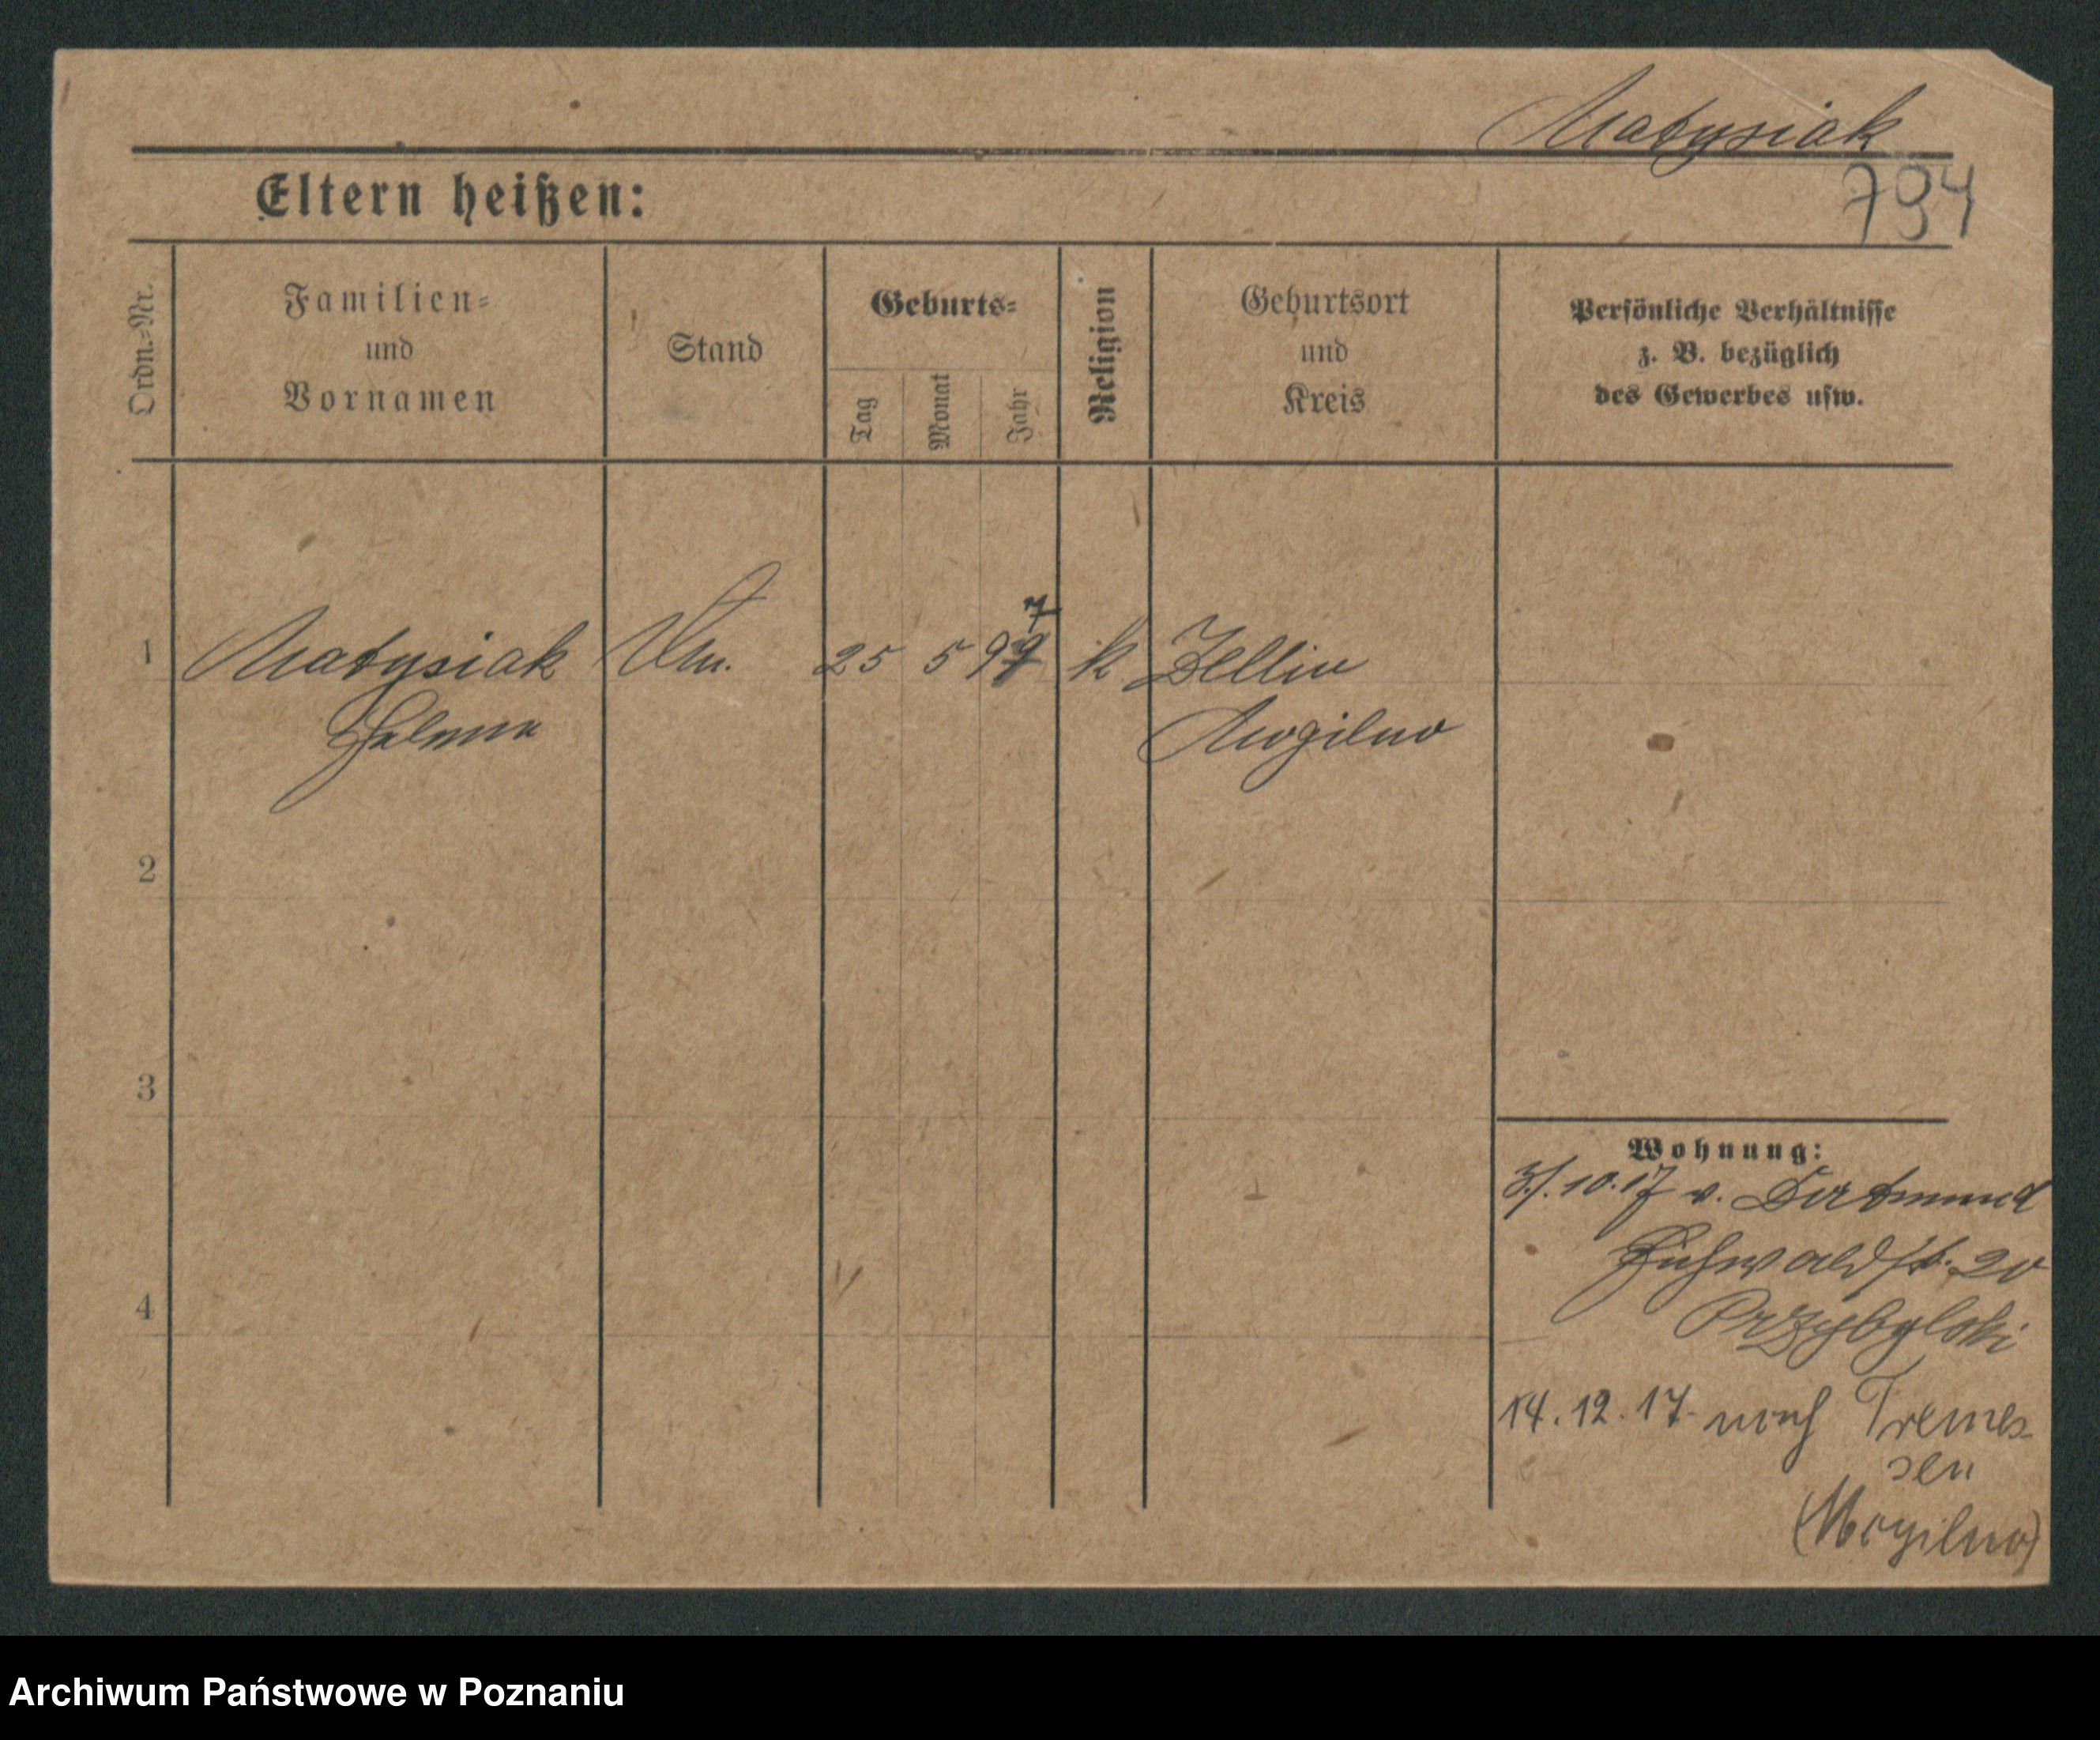 Matysiak
794
Eltern heißen:
Ordn.=Nr.
Familien=
und
Vornamen
Stand
Geburts=
Tag
Monat
Jahr
Religion
Geburtsort
und
Kreis
Persönliche Verhältnisse
z. B. bezüglich
des Gewerbes usw.
1 Matysiak 25 5 97 k
Helena Mogilno
2
3
4
Wohnung:
31.10.17 v. Dortmund
20
Przybylski
14.12.17 nach Tremes-
sen
(Mogilno)
Archiwum Państwowe w Poznaniu